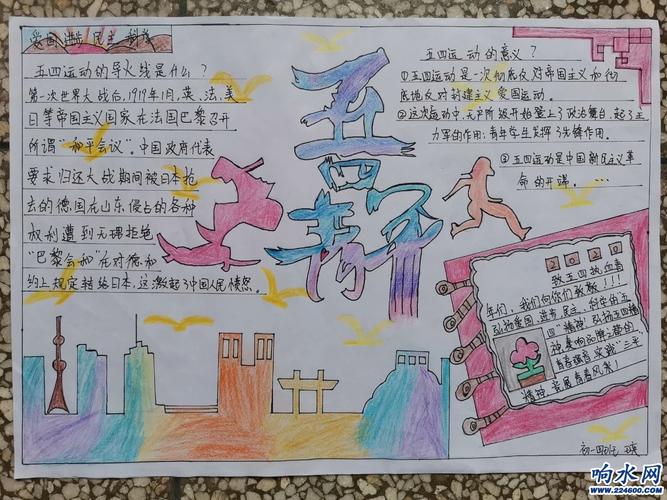 爱国 进步 民主 科学
五四运动的导火线是什么?
第一次世界大战后,1919年1月,英、法、美
日等帝国主义国家在法国巴黎召开
所谓“和平会议”。中国政府代表
要求归还大战期间被日本抢
去的德国在山东侵占的各种
权利遭到无理拒绝
“巴黎会和”在对德和
约上规定转给日本,这激起了中国人民愤怒。
五四青年
五四运动的意义?
①五四运动是一次彻底反对帝国主义和彻
底地反对封建主义爱国运动。
②这次运动中,无产阶级开始登上了政治舞台,起了主
力军的作用;青年学生发挥了先锋作用。
③五四运动是中国新民主义革
命的开端。
2020
致五四热血青
年们,我们向你们致敬!!!
弘扬爱国 进步 民主、科学的五
四“精神” 弘扬五四精
神
精神 展青春风采!
初一四班 
响水网
www.224600.com